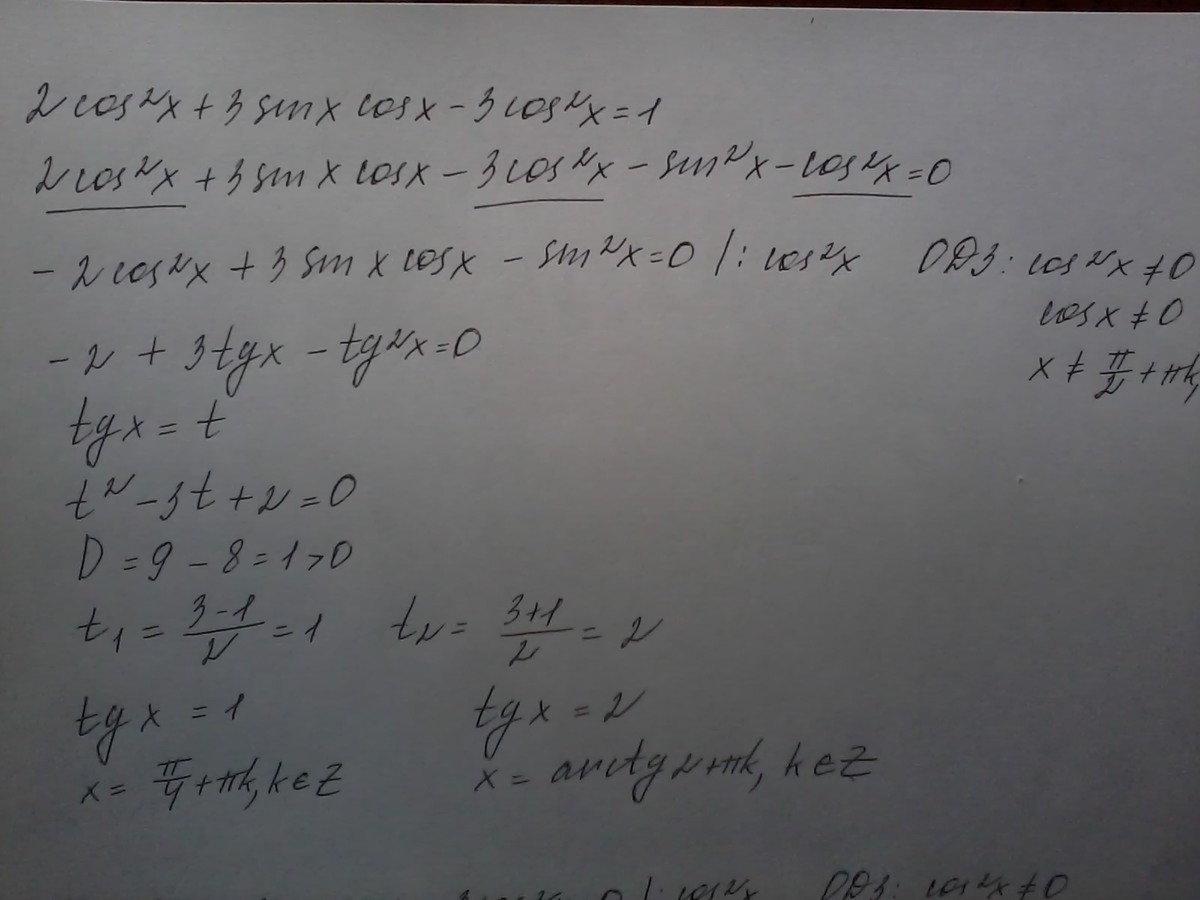 2cos²x + 3sinx cosx - 3cos²x = 1
2cos²x + 3sinx cosx - 3cos²x - sin²x - cos²x = 0
- 2cos²x + 3sinx cosx - sin²x = 0 |: cos²x ОДЗ: cos²x ≠ 0
cosx ≠ 0
- 2 + 3tgx - tg²x = 0
x ≠ π/2 + πk,
tgx = t
t² - 3t + 2 = 0
D = 9 - 8 = 1 > 0
t₁ = (3-1)/2 = 1 t₂ = (3+1)/2 = 2
tgx = 1 tgx = 2
x = π/4 + πk, k∈Z x = arctg2 + πk, k∈Z
0 |: cos²x ОДЗ: cos²x ≠ 0